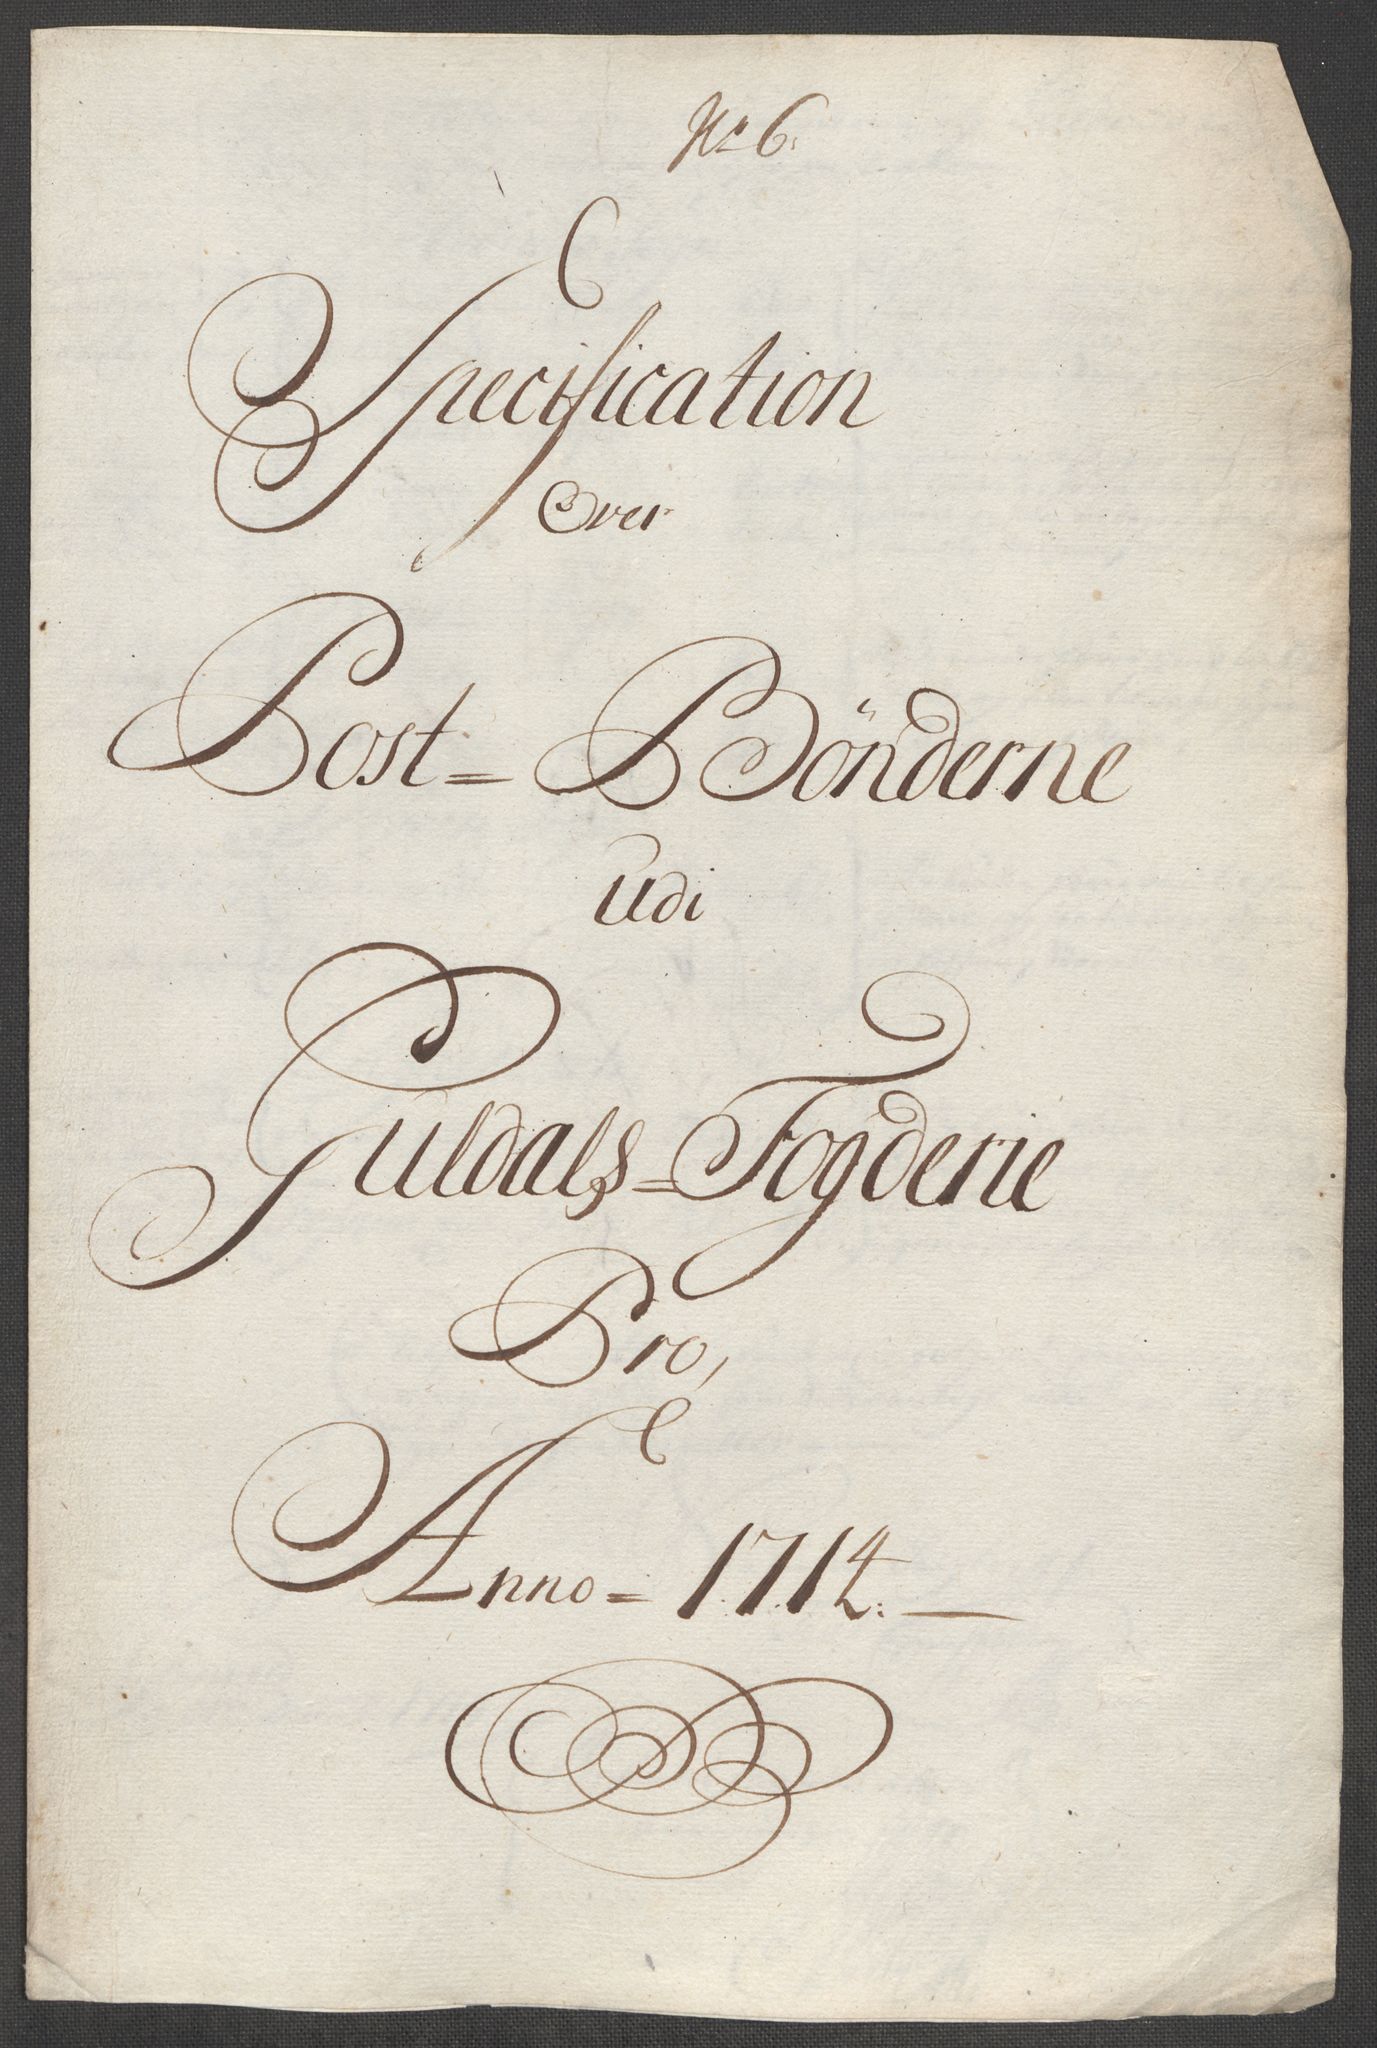 No 6.
Specification
Over
Post= Bönderne
Udi
Guldals=Fogderie
Pro,
Anno= 1714.